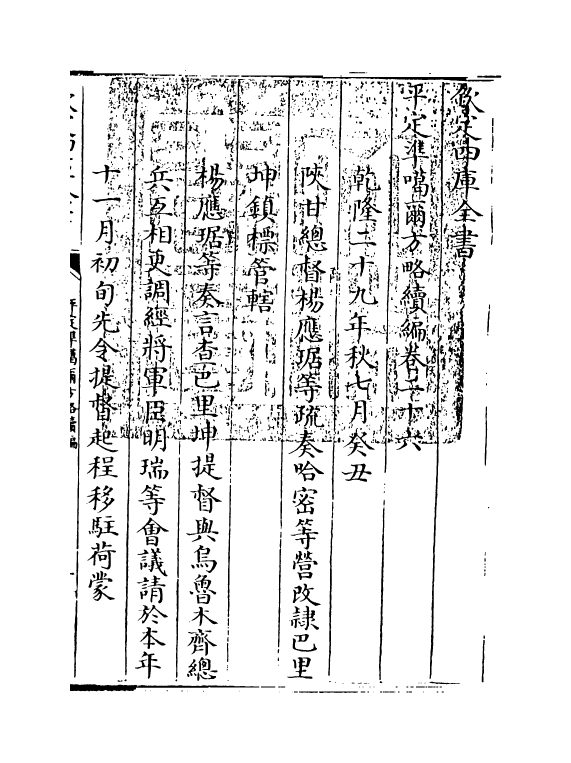 欽定四庫全書
平定準噶爾方略續編卷二十六
乾隆二十九年秋七月癸丑
陜甘總督楊應琚等疏奏哈密等營改隷巴里
坤鎮標管轄
楊應琚等奏言查巴里坤提督與烏魯木齊總
兵互相更調經將軍臣明瑞等會議請於本年
十一月初旬先令提督起程移駐荷蒙